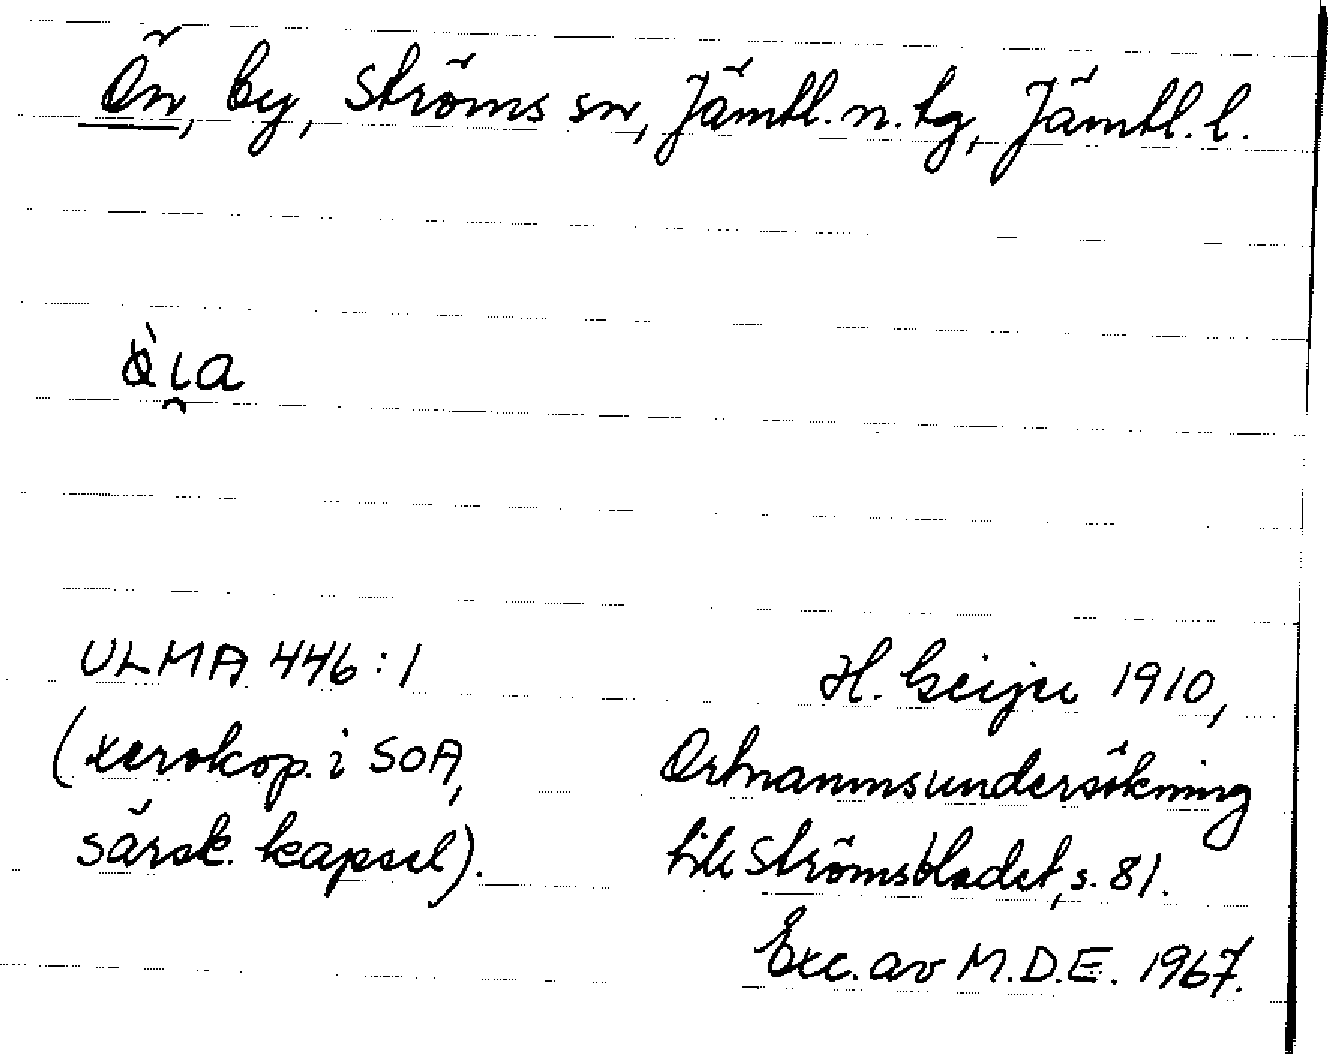 Ön, by, Ströms sn, Jämtl. n. tg, Jämtl. l.
ULMA 446:1
(xerokop. i SOA,
särsk. kapsel).
H. Geijer 1910,
Ortnamnsundersökning
till Strömsbladet, s. 81.
Exc. av M.D.E. 1967.